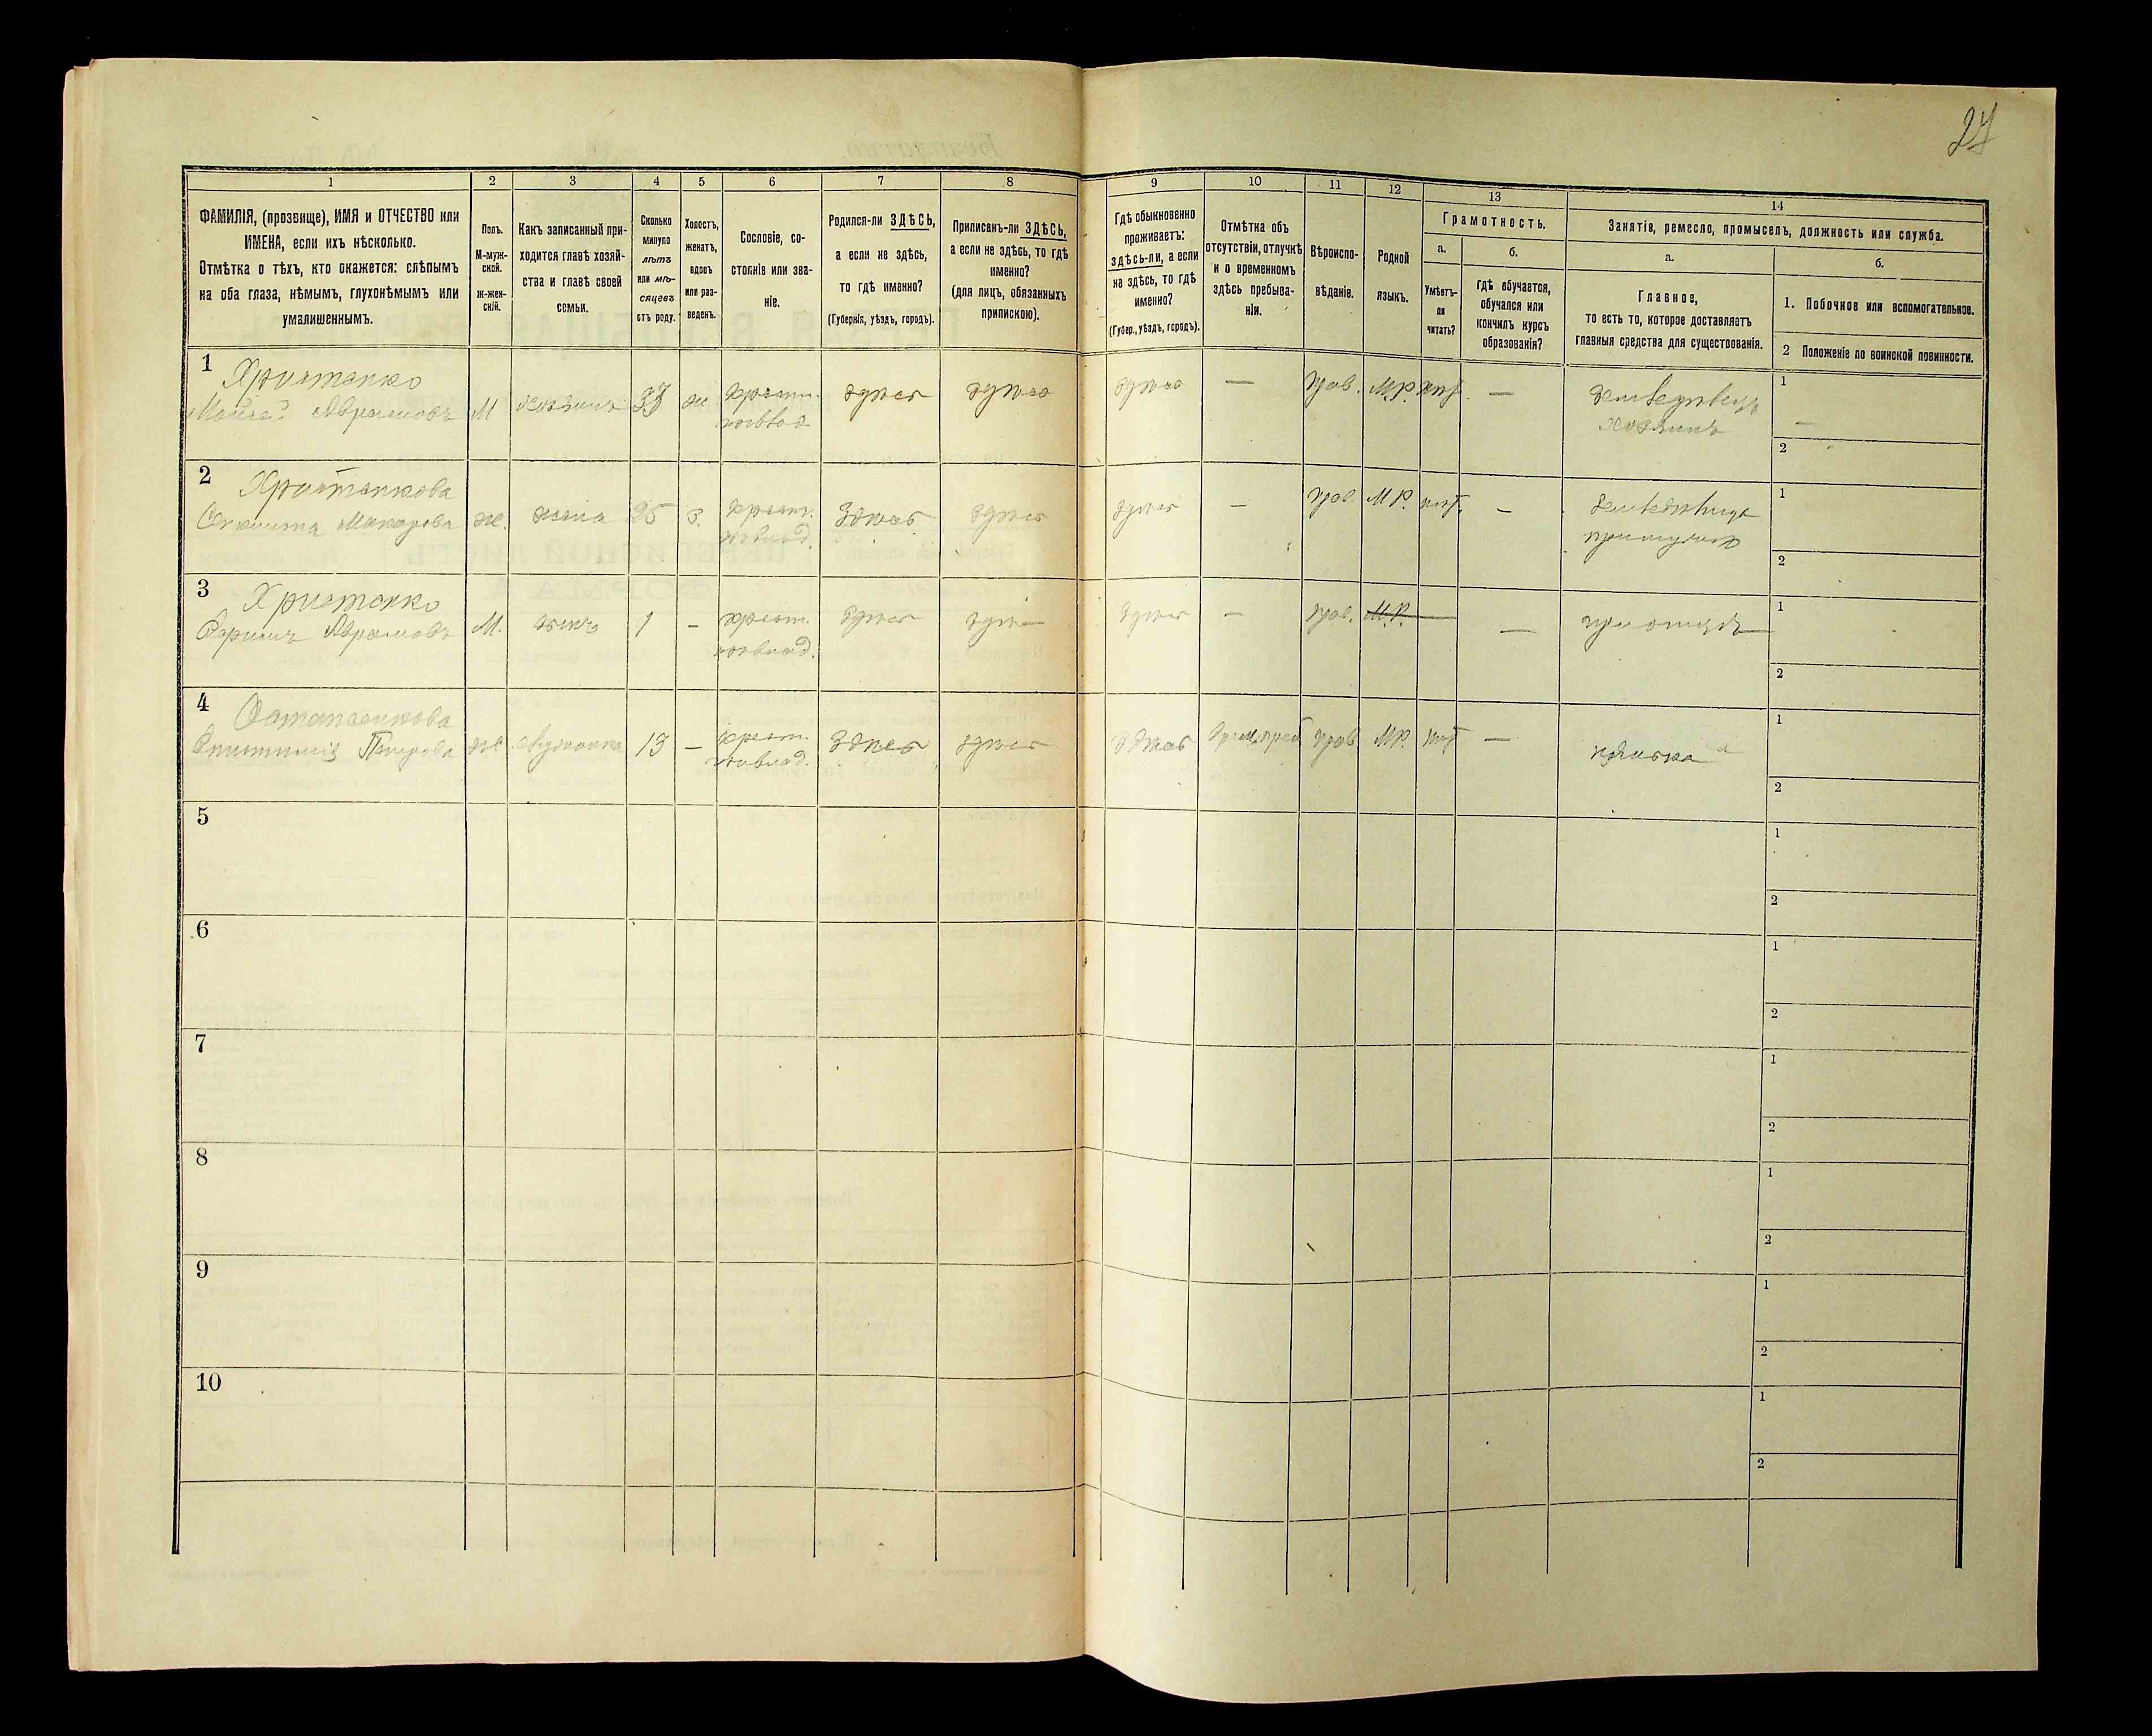 27
1
2
3
4
5
6
7
8
9
10
11
12
13
14
ФАМИЛІЯ, (прозвище), ИМЯ и ОТЧЕСТВО или
ИМЕНА, если ихъ нѣсколько.
Отмѣтка о тѣхъ, кто окажется: слѣпымъ
на оба глаза, нѣмымъ, глухонѣмымъ или
умалишеннымъ.
Полъ.
М-муж-
ской.
Ж-жен-
скій.
Какъ записанный при-
ходится главѣ хозяй-
ства и главѣ своей
семьи.
Сколько
минуло
лѣтъ
или мѣ-
сяцевъ
отъ роду.
Холостъ,
женатъ,
вдовъ
или раз-
веденъ.
Сословіе, со-
стояніе или зва-
ніе.
Родился-ли ЗДѢСЬ,
а если не здѣсь,
то гдѣ именно?
(Губернія, уѣздъ, городъ).
Приписанъ-ли ЗДѢСЬ,
а если не здѣсь, то гдѣ
именно?
(для лицъ, обязанныхъ
припискою).
Гдѣ обыкновенно
проживаетъ:
здѣсь-ли, а если
не здѣсь, то гдѣ
именно?
(Губер., уѣздъ, городъ).
Отмѣтка объ
отсутствіи, отлучкѣ
и о временномъ
здѣсь пребыва-
ніи.
Вѣроиспо-
вѣданіе.
Родной
языкъ.
Грамотность.
а.
Умѣетъ-
ли
читать?
б.
гдѣ обучается,
обучался или
кончилъ курсъ
образованія?
Занятія, ремесло, промыселъ, должность или служба.
а.
Главное,
то есть то, которое доставляетъ
главныя средства для существованія.
б.
1. Побочное или вспомогательное.
2 Положеніе по воинской повинности.
1
Христенко
Аврамовъ М хозяинъ 37 ж крест. здѣсь здѣсь здѣсь — прав. М.Р. нѣт. — земледѣлецъ 1
—
хозяинъ
2
2
Христенкова
Макарова ж. жена 25 з. крест. здѣсь здѣсь здѣсь — прав. М.Р. нѣт. — 1
2
3
Христенко
Аврамовъ М. сынъ 1 — крест. здѣсь здѣсь здѣсь — прав. М.Р. — — при отцѣ 1
2
4
Остапенкова
Петрова ж 13 — крест. здѣсь здѣсь здѣсь прав. М.Р. нѣт — нянька 1
2
5
1
2
6
1
2
7
1
2
8
1
2
9
1
2
10
1
2